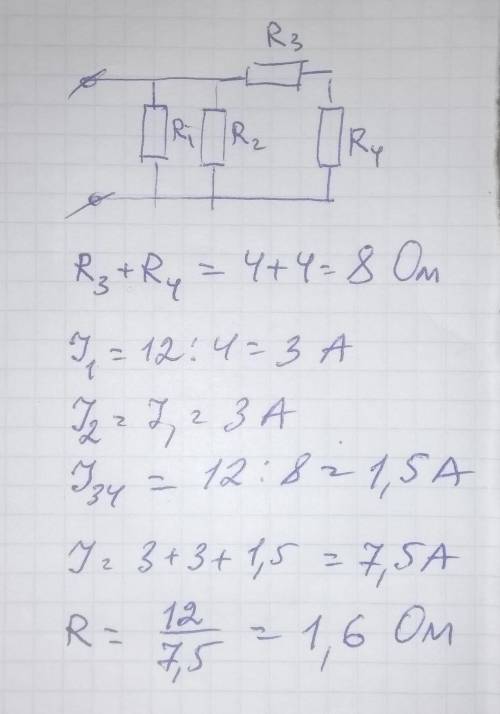 R3
R1 R2 R4
R3 + R4 = 4 + 4 = 8 Ом
I1 = 12 : 4 = 3 А
I2 = I1 = 3 А
I34 = 12 : 8 = 1,5 А
I = 3 + 3 + 1,5 = 7,5 А
R = 12/7,5 = 1,6 Ом